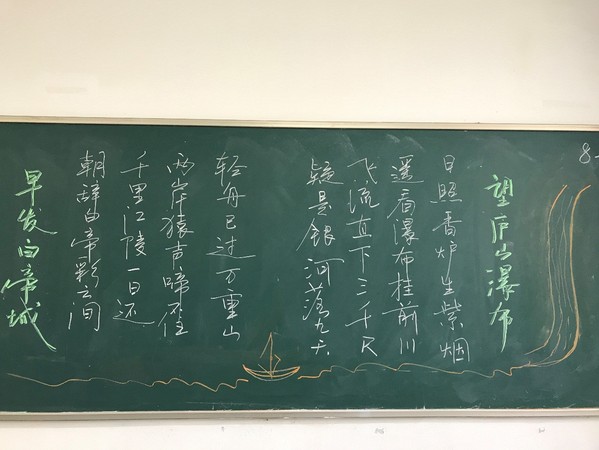 8-
望庐山瀑布
日照香炉生紫烟
遥看瀑布挂前川
飞流直下三千尺
疑是银河落九天
早发白帝城
朝辞白帝彩云间
千里江陵一日还
两岸猿声啼不住
轻舟已过万重山